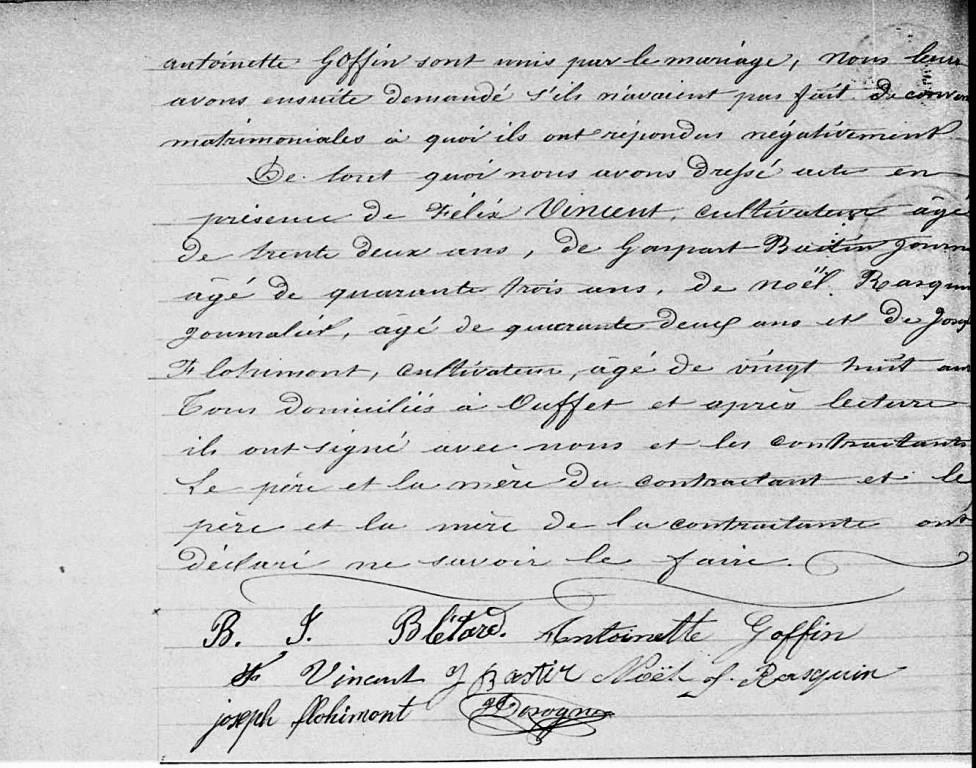 antoinette Goffin sont unis par le mariage, nous leur
avons ensuite demandé s'ils n'avaient pas fait de conven
matrimoniales à quoi ils ont répondu négativement
De tout quoi nous avons dressé acte en
présence de Félix Vincent, cultivateur âgé
de trente deux ans, de Gaspart Bastin journ
âgé de quarante trois ans, de noël Rasquin
journalier, âgé de quarante deux ans et de Josep
Flohimont, cultivateur, âgé de vingt huit ans
Tous domiciliés à Ouffet et après lecture
ils ont signé avec nous et les contractants
Le père et la mère du contractant et le
père et la mère de la contractante ont
déclaré ne savoir le faire.
B. J. Blétard. Antoinette Goffin
Vincent g bastin Noël J. Rasquin
joseph flohimont